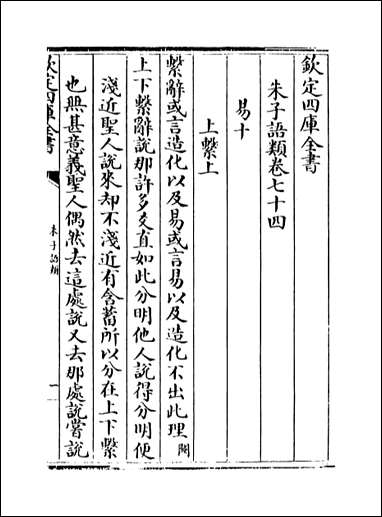 欽定四庫全書
朱子語類卷七十四
易十
上繫上
繫辭或言造化以及易或言易以及造化不出此理閎
上下繫辭說那許多爻直如此分明他人說得分明便
淺近聖人說來却不淺近有含蓄所以分在上下繫
也無甚意義聖人偶然去這處說又去那處說嘗說
欽定四庫全書
朱子語類
一